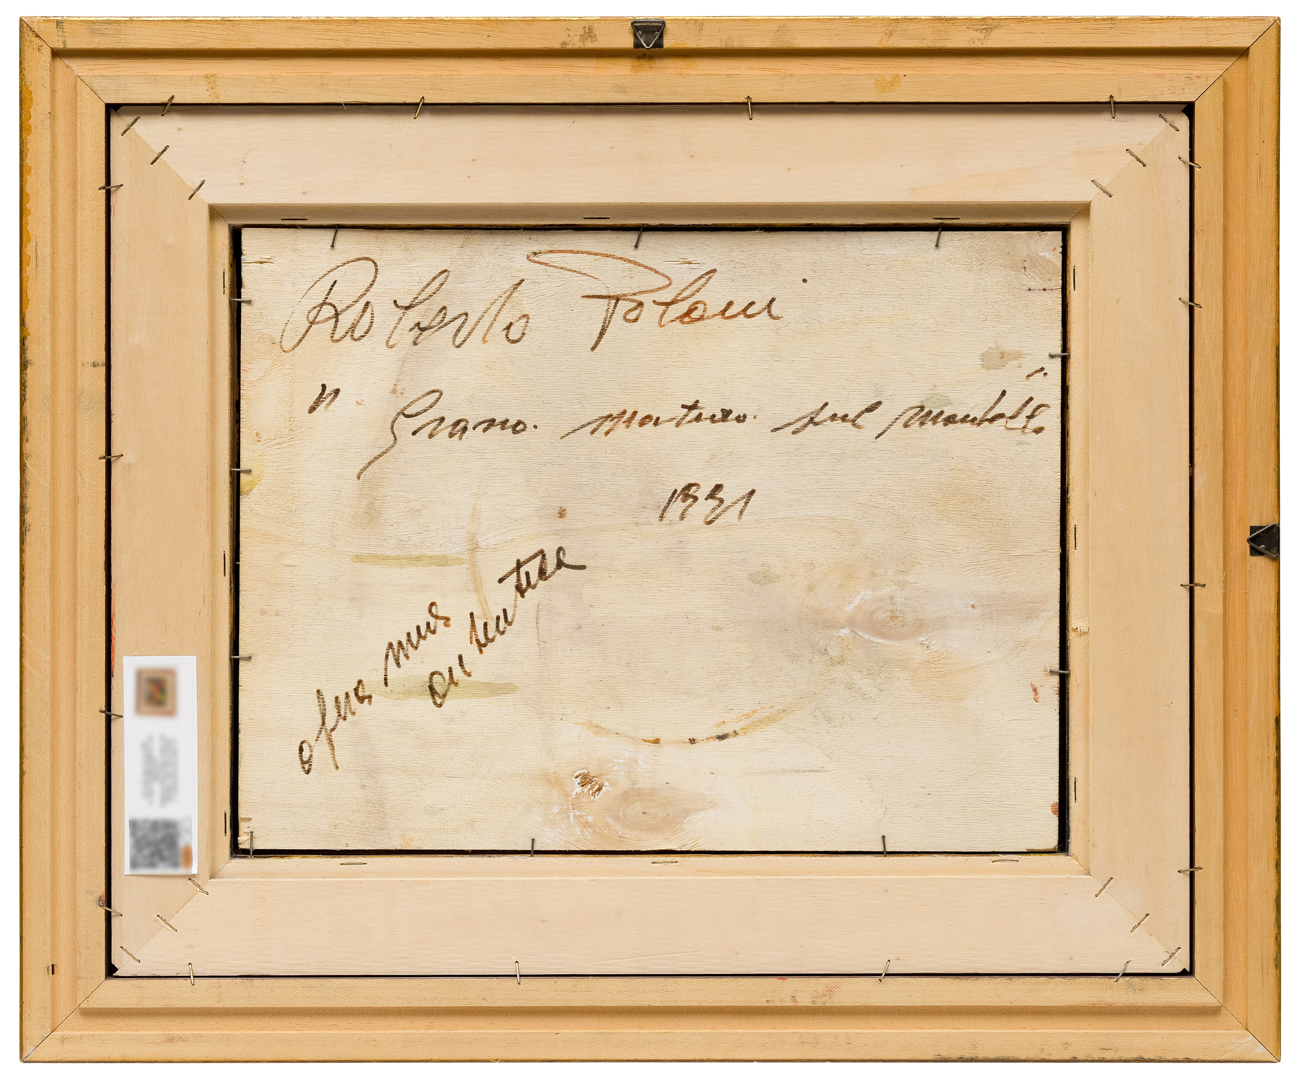 Roberto Poloni
" Grano maturo sul Montello "
1991
opera mia
autentica